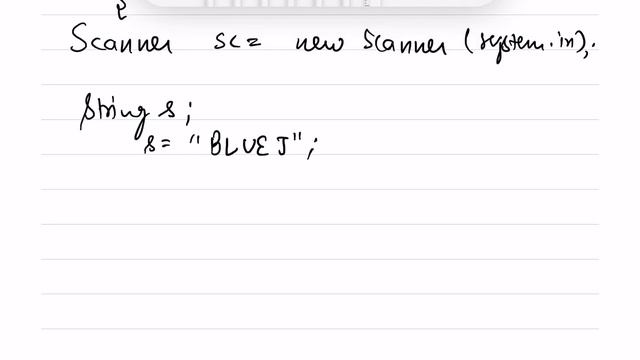 {
Scanner sc = new Scanner (system.in);
String s;
s = "BLUEJ";